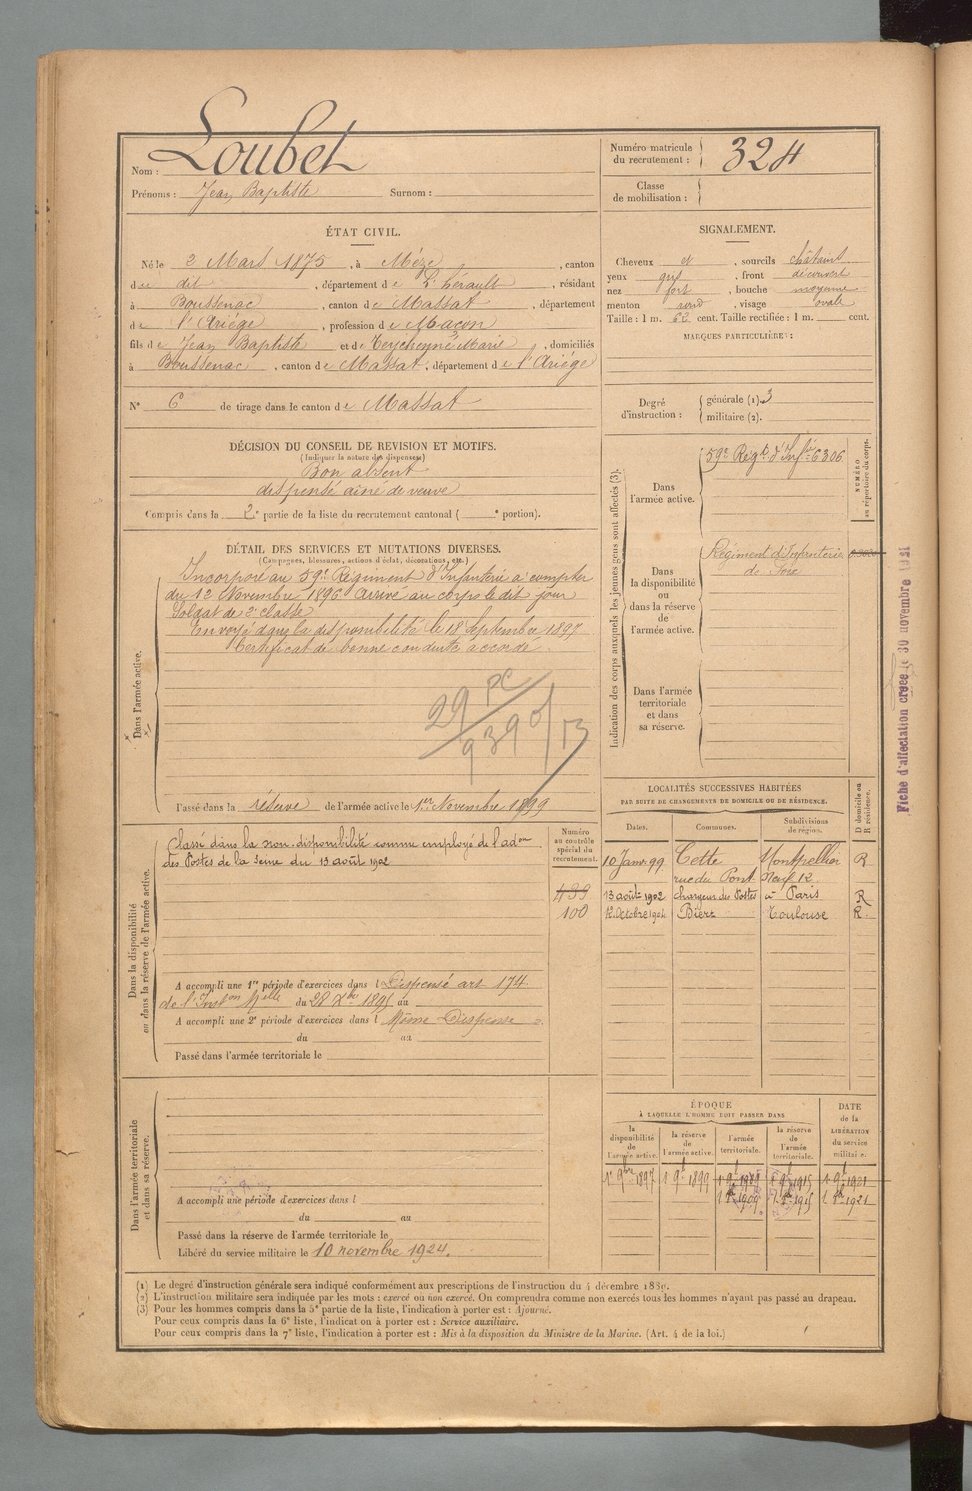 Nom : Loubet
Prénoms : Jean Baptiste Surnom :
Numéro matricule du recrutement : 324
Classe de mobilisation :
ÉTAT CIVIL.
Né le 2 Mars 1875, à Mèze, canton
de dit, département de L'hérault, résidant
à Boussenac, canton de Massat, département
de l'Ariège, profession de Maçon
fils de Jean Baptiste et de Teycheyné Marie, domiciliés
à Boussenac, canton de Massat, département de l'Ariège
N° 6 de tirage dans le canton de Massat
SIGNALEMENT.
Cheveux et, sourcils châtains
yeux gris, front découvert
nez fort, bouche moyenne
menton rond, visage ovale
Taille : 1 m. 62 cent. Taille rectifiée : 1 m. cent.
MARQUES PARTICULIÈRES :
Degré d'instruction : générale (1). 3
militaire (2).
DÉCISION DU CONSEIL DE REVISION ET MOTIFS.
(Indiquer la nature des dispenses)
Bon absent
dispensé aîné de veuve
Compris dans la 2e partie de la liste du recrutement cantonal ( e portion).
DÉTAIL DES SERVICES ET MUTATIONS DIVERSES.
(Campagnes, blessures, actions d'éclat, décorations, etc.)
Dans l'armée active.
Incorporé au 59e Régiment d'Infanterie à compter
du 12 Novembre 1896 Arrivé au corps le dit jour
Soldat de 2e classe
Envoyé dans la disponibilité le 18 Septembre 1897
Certificat de bonne conduite accordé.
Passé dans la réserve de l'armée active le 1er Novembre 1899
Indication des corps auxquels les jeunes gens sont affectés (3).
NUMÉRO au répertoire du corps.
Dans l'armée active.
59e Régt d'Infie 6306
Dans la disponibilité ou dans la réserve de l'armée active.
Régiment d'Infanterie
de Foix
Dans l'armée territoriale et dans sa réserve.
Fiche d'affectation créée le 30 novembre 1921
Dans la disponibilité ou dans la réserve de l'armée active.
Classé dans la non-disponibilité comme employé de l'adon
des Postes de la Seine du 13 août 1902
Numéro au contrôle spécial du recrutement.
439
100
A accompli une 1re période d'exercices dans l Dispensé art 174
de l'Inston Melle du 28 Xbre 1895 au
A accompli une 2e période d'exercices dans l Même Dispense
du au
Passé dans l'armée territoriale le
LOCALITÉS SUCCESSIVES HABITÉES
PAR SUITE DE CHANGEMENTS DE DOMICILE OU DE RÉSIDENCE.
Dates. Communes. Subdivisions de région. D domicile ou R résidence.
10 Janv. 99 Cette Montpellier R
rue du Pont Neuf 12
13 août 1902 chargeur des Postes à Paris R
12 Octobre 1904 Biert Toulouse R.
Dans l'armée territoriale et dans sa réserve.
A accompli une période d'exercices dans l
du au
Passé dans la réserve de l'armée territoriale le
Libéré du service militaire le 10 novembre 1924.
ÉPOQUE
À LAQUELLE L'HOMME DOIT PASSER DANS
la disponibilité de l'armée active. la réserve de l'armée active. l'armée territoriale. la réserve de l'armée territoriale.
DATE de la LIBÉRATION du service militaire.
1er 9bre 1897 1er 9bre 1899
(1) Le degré d'instruction générale sera indiqué conformément aux prescriptions de l'instruction du 4 décembre 1889.
(2) L'instruction militaire sera indiquée par les mots : exercé ou non exercé. On comprendra comme non exercés tous les hommes n'ayant pas passé au drapeau.
(3) Pour les hommes compris dans la 5e partie de la liste, l'indication à porter est : Ajourné.
Pour ceux compris dans la 6e liste, l'indication à porter est : Service auxiliaire.
Pour ceux compris dans la 7e liste, l'indication à porter est : Mis à la disposition du Ministre de la Marine. (Art. 4 de la loi.)